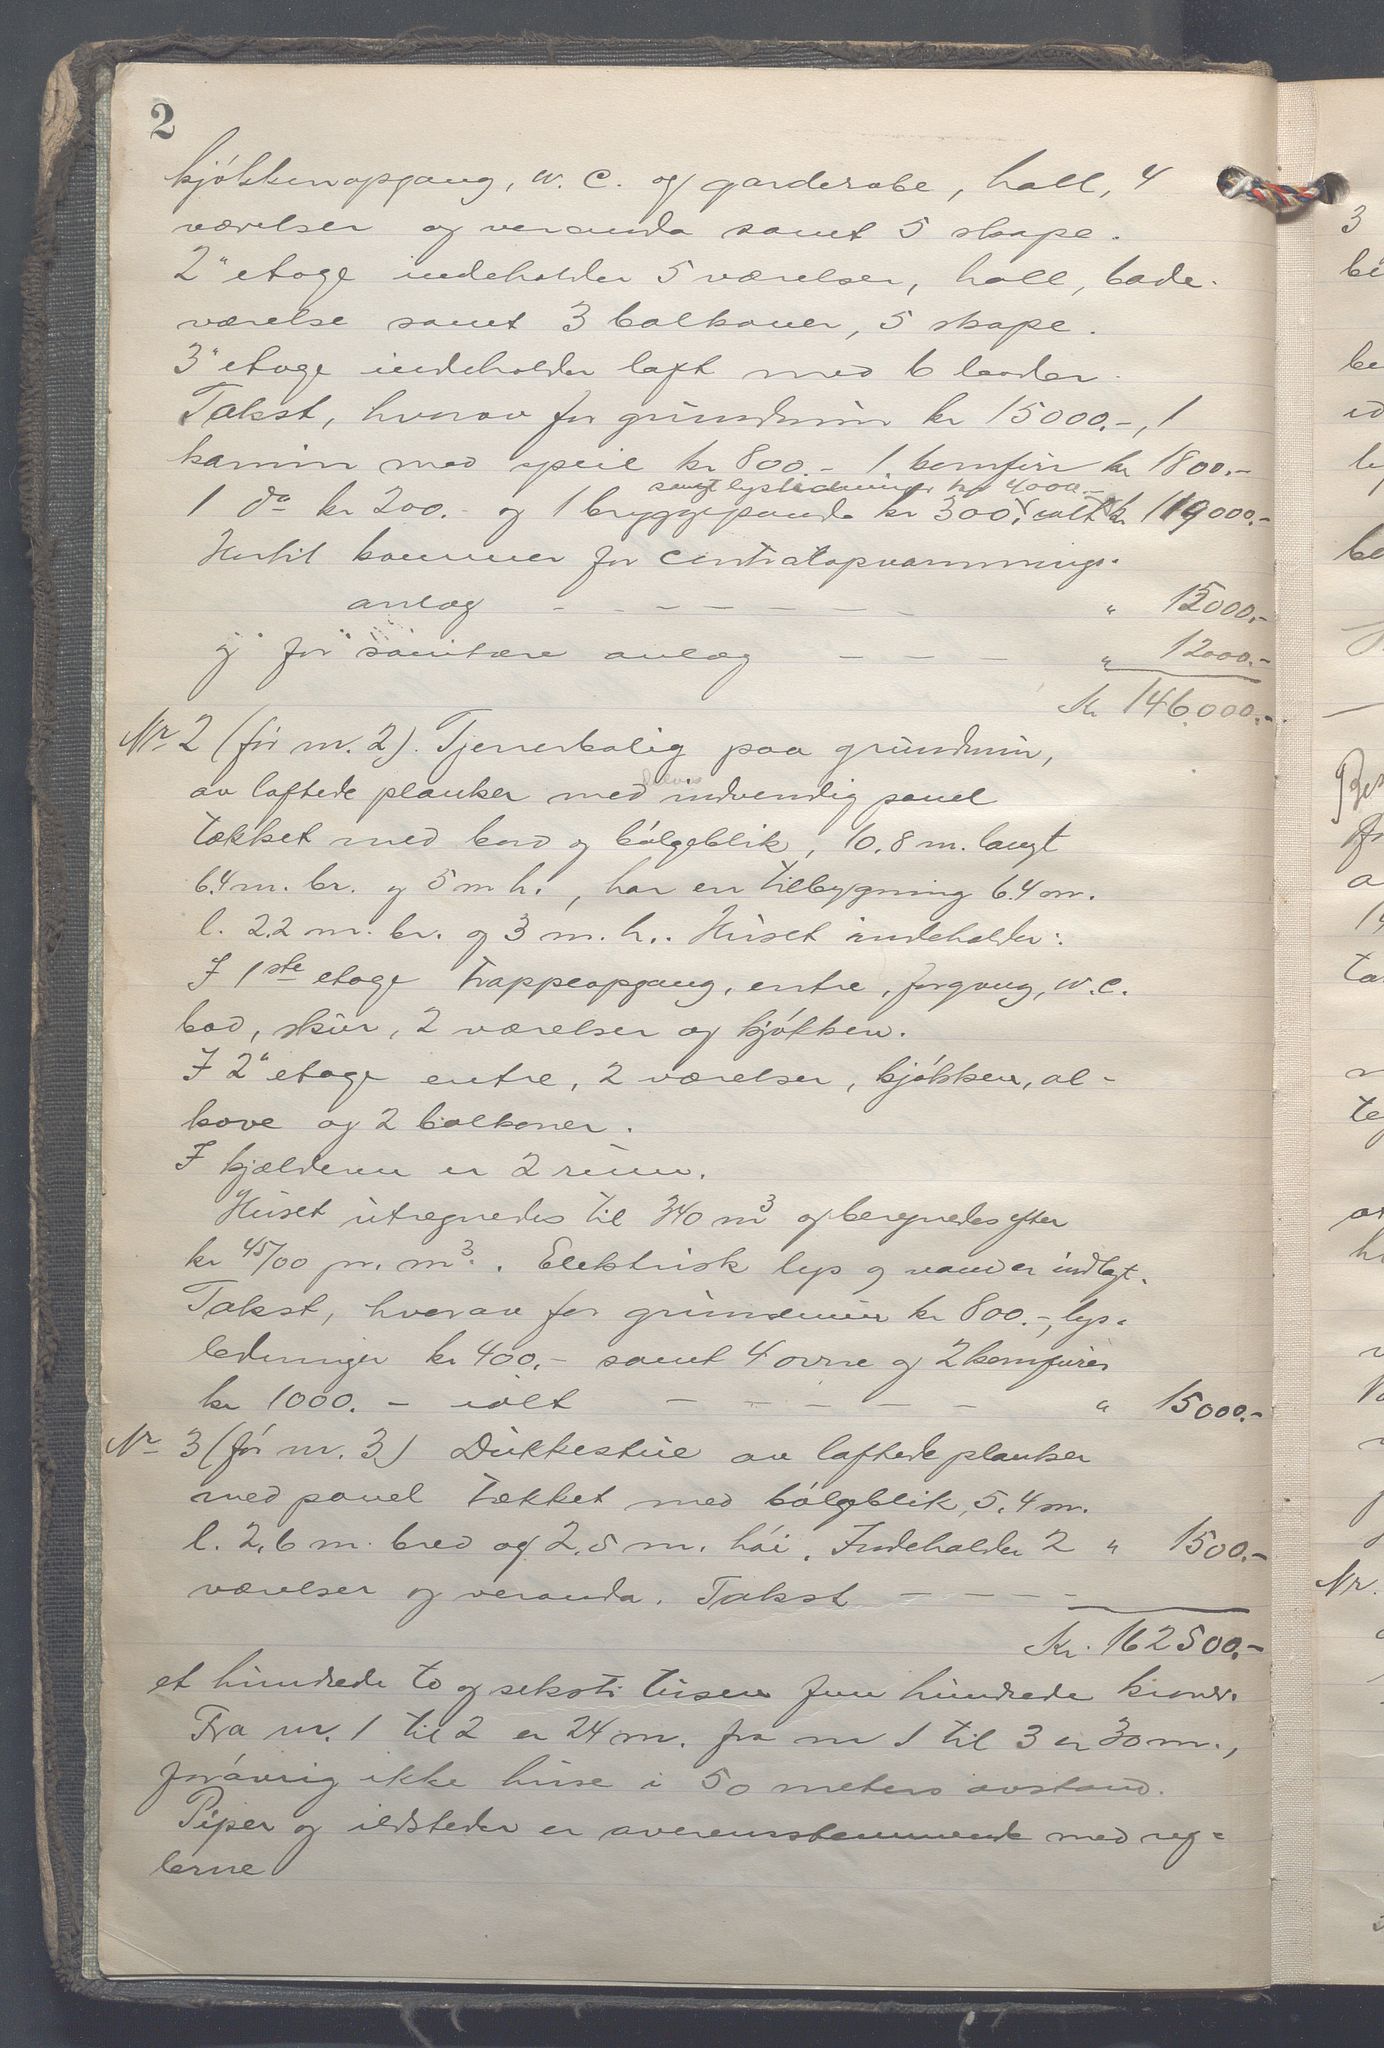 2
kjökkenopgang, w. c. og garderobe, hall, 4
værelser og veranda samt 5 skape.
2" etage indeholder 5 værelser, hall, bade-
værelse samt 3 balkoner, 5 skape.
3" etage indeholder loft med 6 boder.
Takst, hvorav for grundmur kr 15000.-, 1
kamin med speil kr 800.- 1 komfür kr 1800.-
samt lysledninger kr 4000.-
1 do kr 200.- og 1 bryggepande kr 300.- ialt kr 119000.-
Hertil kommer for centralopvarmnings-
anlæg - - - - - - - " 15000.-
og for sanitære anlæg - - - " 12000.-
Kr 146.000.-
Nr 2 (för nr. 2). Tjenerbolig paa grundmur,
av laftede planker med delvis indvendig panel
tækket med bord og bölgeblik, 10.8 m. langt
6.4 m. br. og 5 m h., har en tilbygning 6.4 m.
l. 2.2 m. br. og 3 m. h.. Huset indeholder:
I 1ste etage trappeopgang, entre, forgang, w.c.
bod, skur, 2 værelser og kjökken.
I 2" etage entre, 2 værelser, kjökken, al-
kove og 2 balkoner.
I kjælderen er 2 rum.
Huset utregnedes til 340 m3 og beregnedes efter
kr 45/00 pr. m3. Elektrisk lys og vand er indlagt.
Takst, hvorav for grundmur kr 800.-, lys-
ledninger kr 400.- samt 4 ovne og 2 komfurer
kr 1000.- ialt - - - - - " 15000.-
Nr 3 (för nr. 3) Dukkestue av laftede planker
med panel tækket med bölgeblik, 5.4 m.
l. 2.6 m. bred og 2.5 m. höi. Indeholder 2 " 1500.-
værelser og veranda. Takst - - - -
Kr. 162500.-
et hundrede to og seksti tusen fem hundrede kroner.
Fra nr. 1 til 2 er 24 m. fra nr 1 til 3 er 30 m.,
forövrig ikke huse i 50 meters avstand.
Piper og ildsteder er overensstemmende med reg-
lerne